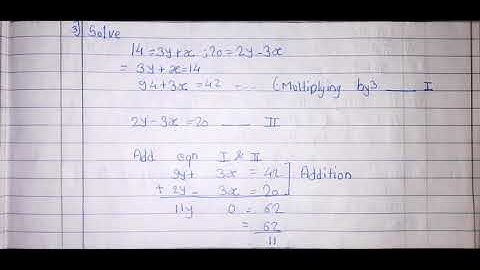 3) Solve
14 = 3y+x ; 20 = 2y-3x
= 3y + x = 14
9y+3x = 42 --- (Multiplying by 3 ___ I
2y-3x = 20 ___ II
Add eqn I & II
9y+ 3x = 42
+ 2y- 3x = 20 ] Addition
11y 0 = 62
= 62
11